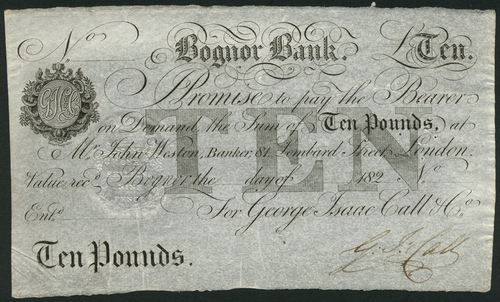 No Bognor Bank. £Ten.
I Promise to pay the Bearer
on Demand, the Sum of Ten Pounds, at
Mr. John Weston, Banker, 81, Lombard Street, London.
Value recd. Bognor the day of 182 No
Entd. For George Isaac Call & Co.
Ten Pounds. G. I. Call
TEN